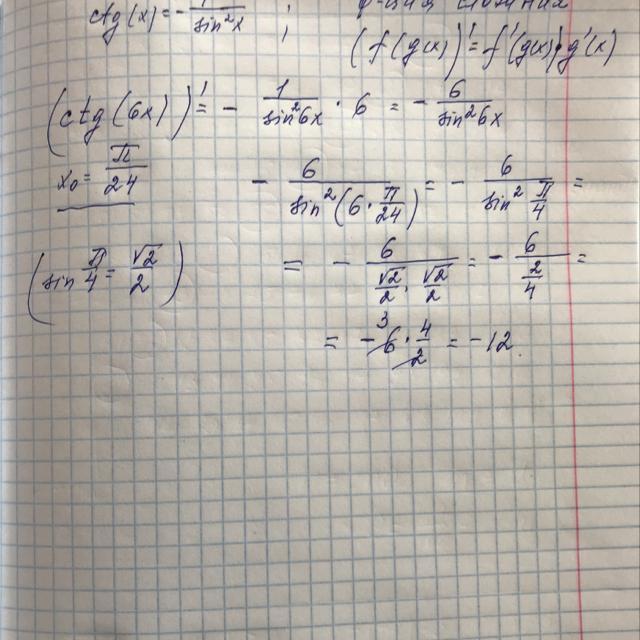 ctg(x) = - 1/sin²x ; ф-ция сложная
; (f(g(x))' = f'(g(x))·g'(x)
(ctg(6x))' = - 1/sin²6x · 6 = - 6/sin²6x
x₀ = π/24 - 6/sin²(6·π/24) = - 6/sin² π/4 =
(sin π/4 = √2/2) = - 6/(√2/2 · √2/2) = - 6/(2/4) =
= - 6³ · 4/2 = -12.